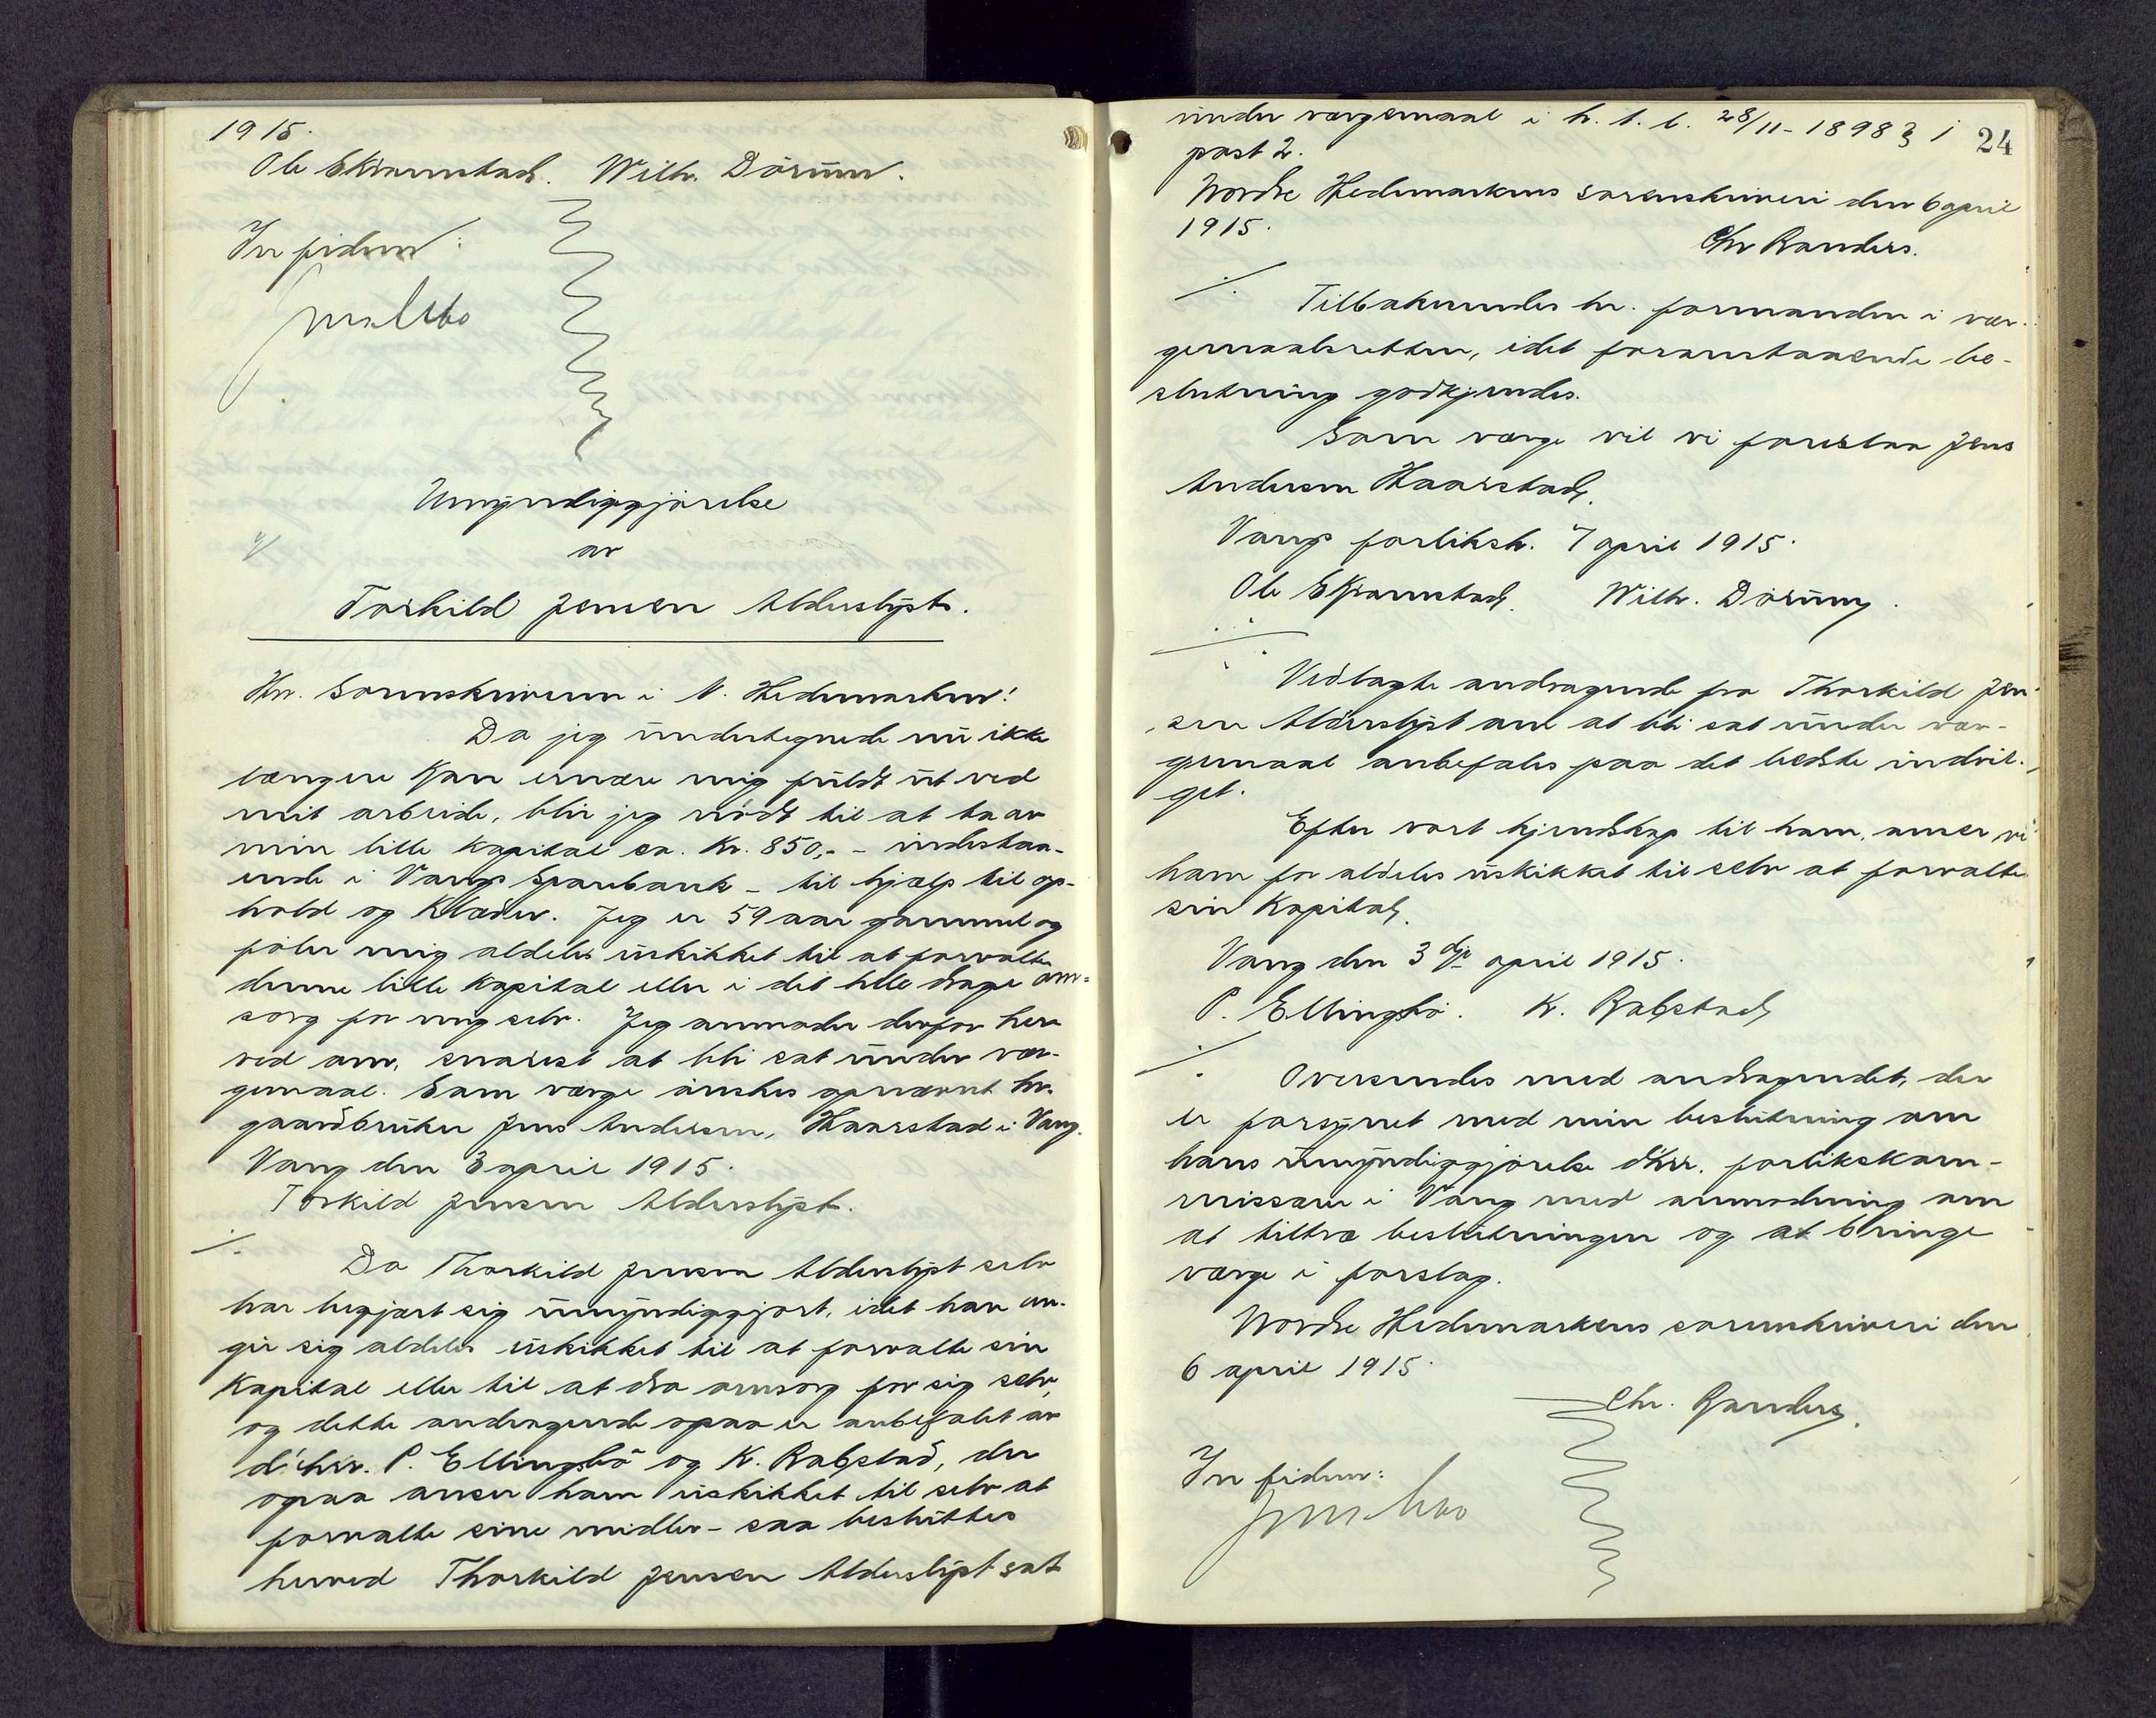 1915.
Ole Skramstad. Wilh. Dörum.
In fidem:
Umyndiggjørelse
av
Torkild Jensen Alderslyst.
Hr. Sorenskriveren i N. Hedemarken!
Da jeg undertegnede nu ikke
længere kan ernære mig fuldt ut ved
mit arbeide, blir jeg nödt til at ta av
min lille kapital ca. Kr. 850,- - indestaa-
ende i Vangs Sparebank - til hjælp til op-
hold og klæder. Jeg er 59 aar gammel og
föler mig aldeles uskikket til at forvalte
denne lille kapital eller i det hele drage om-
sorg for mig selv. Jeg anmoder derfor her
ved om, snarest at bli sat under vær-
gemaal. Som værge önskes opnævnt hr.
gaardbruker Jens Andersen, Haarstad i Vang.
Vang den 3 april 1915.
Torkild Jensen Alderslyst.
./.
Da Thorkild Jensen Alderslyst selv
har begjært sig umyndiggjort, idet han an-
gir sig aldeles uskikket til at forvalte sin
kapital eller til at dra omsorg for sig selv,
og dette andragende ogsaa er anbefalet av
d'hrr. P. Ellingsbö og K. Rabstad, der
ogsaa anser ham uskikket til selv at
forvalte sine midler - saa besluttes
herved Thorkild Jensen Alderslyst sat
24
under værgemaal i h. t. l. 28/11-1898 § 1
post 2.
Nordre Hedemarkens sorenskriveri den 6 april
1915.
Chr Randers.
./.
Tilbakesendes hr. formanden i vær-
gemaalsretten, idet foranstaaende be-
slutning godkjendes.
Som værge vil vi foreslaa Jens
Andersen Haarstad.
Vangs forliksk. 7 april 1915.
Ole Skramstad. Wilh. Dörum.
./.
Vedlagte andragende fra Thorkild Jen-
sen Alderslyst om at bli sat under vær-
gemaal anbefales paa det bedste indvil-
get.
Efter vort kjendskap til ham, anser vi
ham for aldeles uskikket til selv at forvalte
sin kapital.
Vang den 3 dje april 1915.
P. Ellingsbö. K. Rabstad
./.
Oversendes med andragendet, der
er forsynet med min beslutning om
hans umyndiggjörelse d'hrr. forlikskom-
missærer i Vang med anmodning om
at tiltræ beslutningen og at bringe
værge i forslag.
Nordre Hedemarkens sorenskriveri den
6 april 1915.
Chr. Randers.
In fidem: